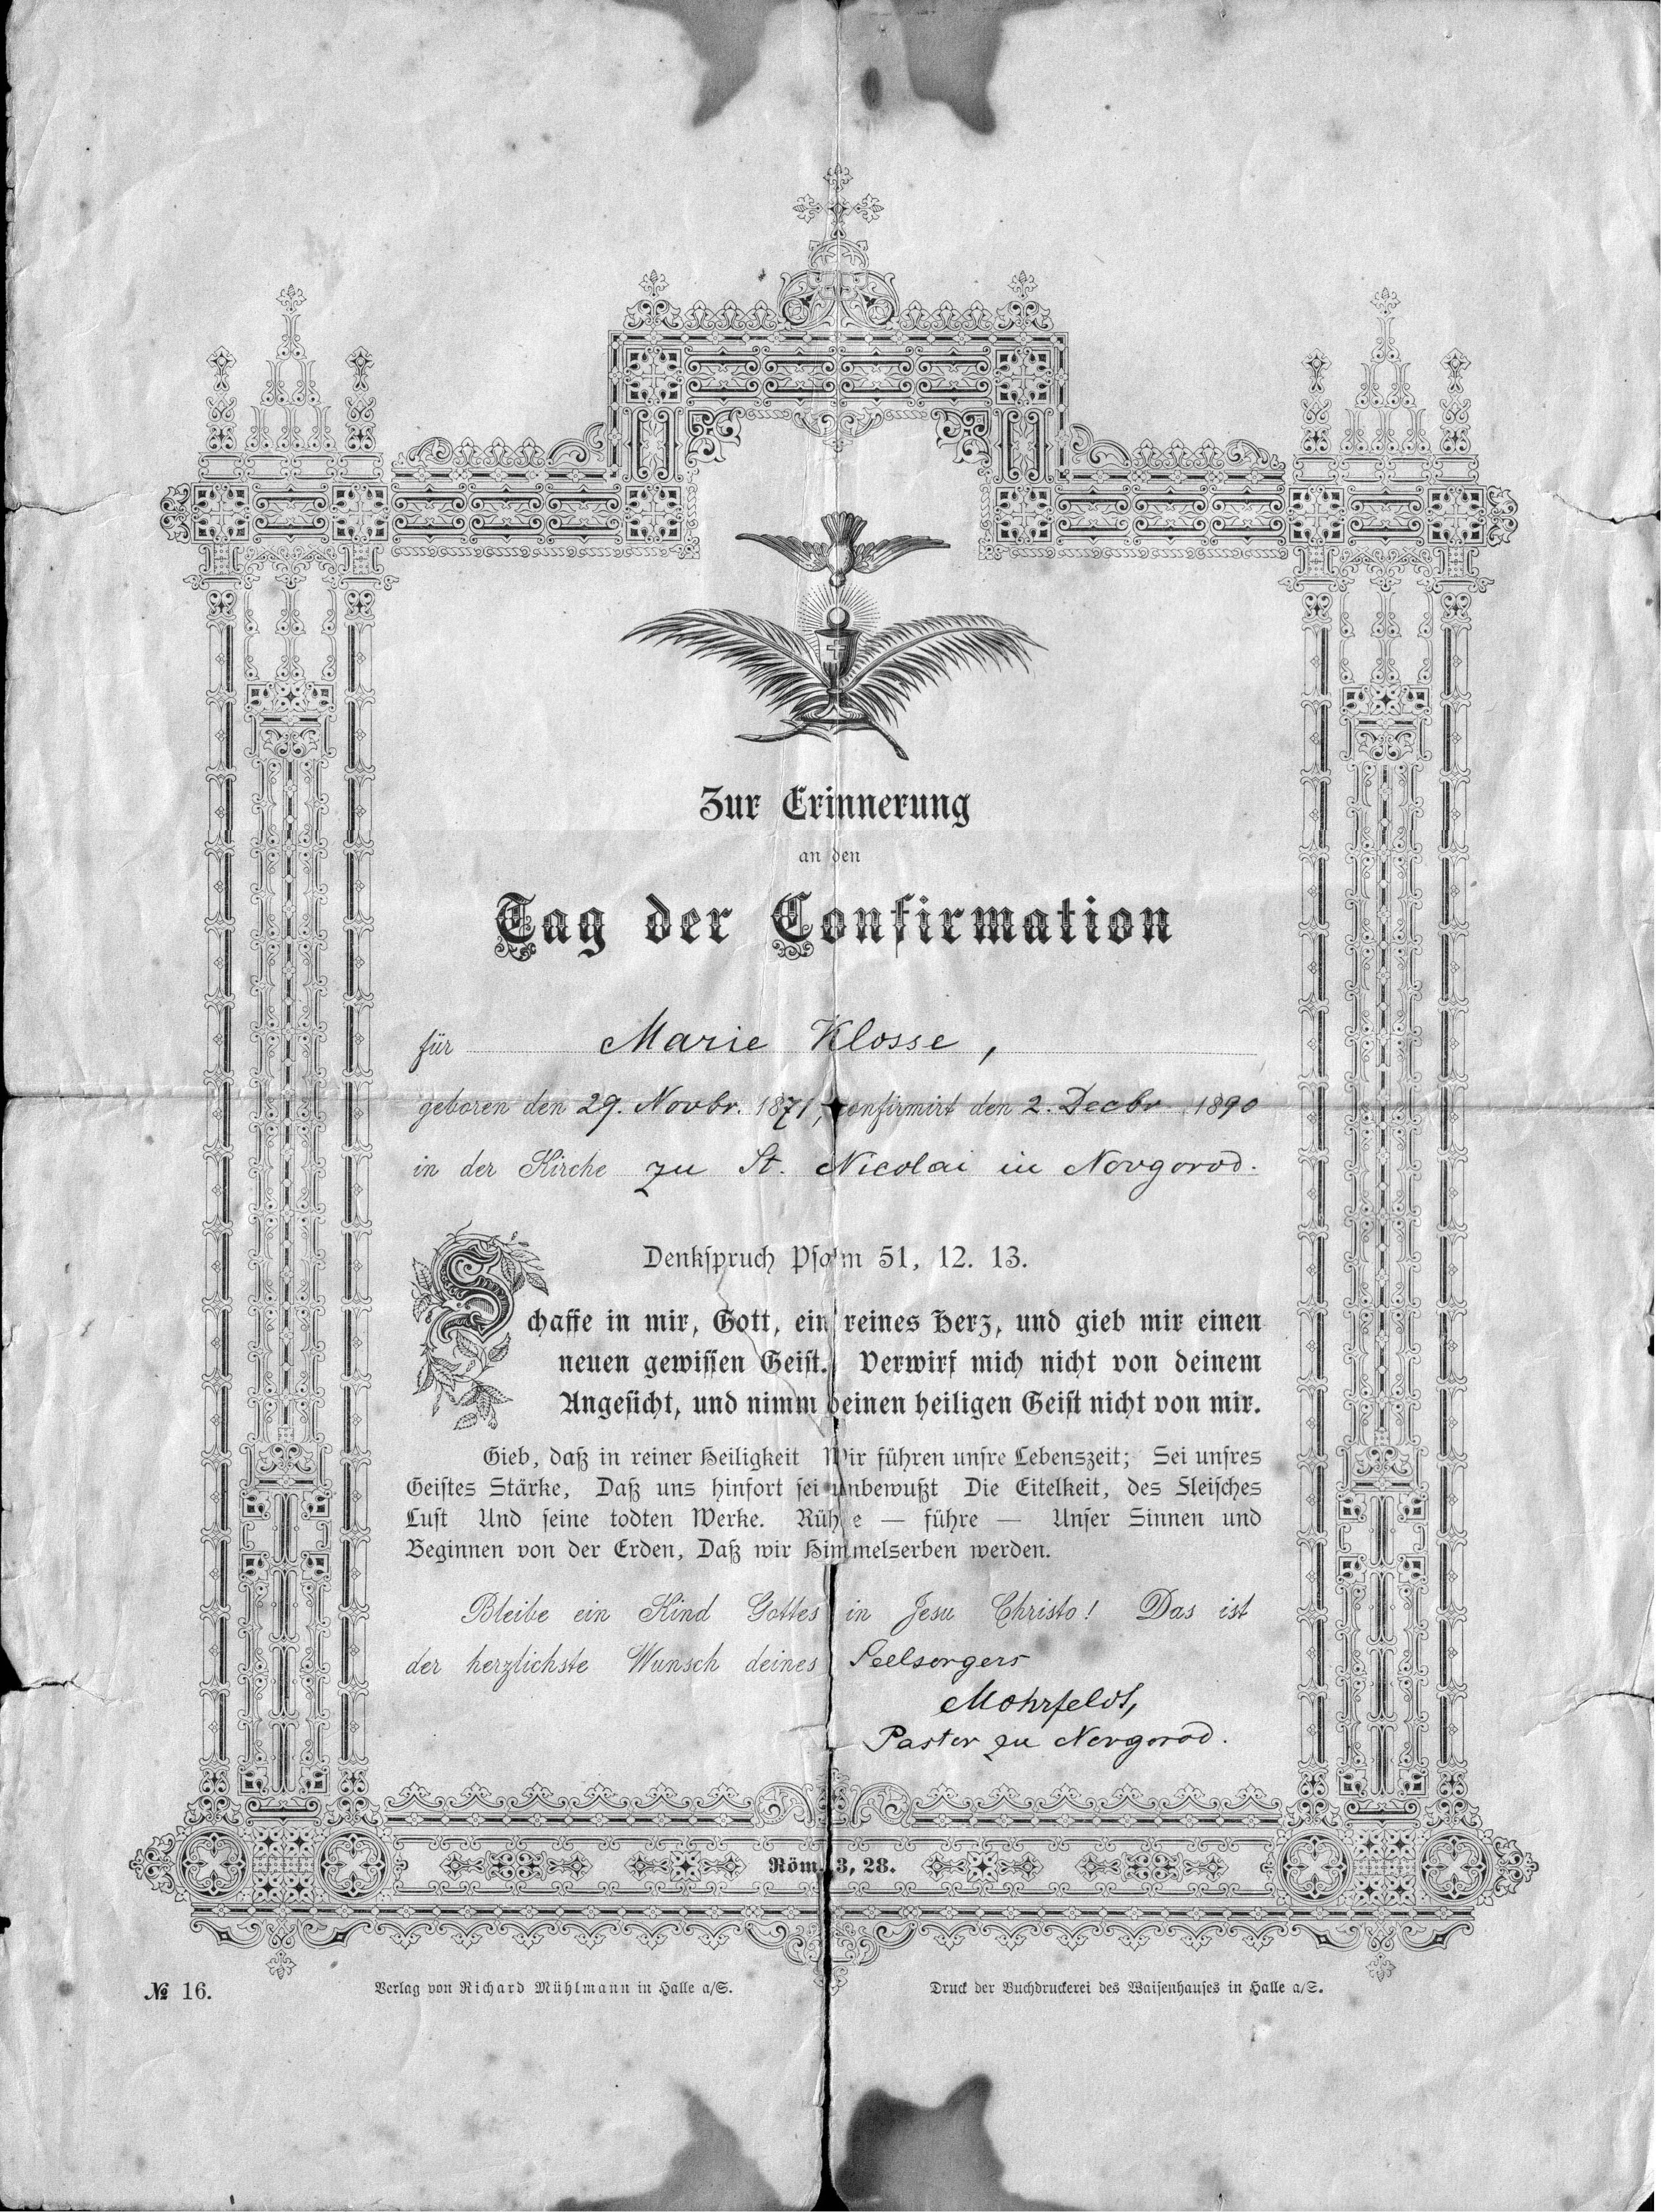 Zur Erinnerung
an den
Tag der Confirmation
für Marie Klosse,
geboren den 29. Novbr. 1871, confirmirt den 2. Decbr. 1890
in der Kirche zu St. Nicolai in Novgorod.
Denkspruch Psalm 51, 12. 13.
Schaffe in mir, Gott, ein reines Herz, und gieb mir einen
neuen gewissen Geist. Verwirf mich nicht von deinem
Angesicht, und nimm deinen heiligen Geist nicht von mir.
Gieb, daß in reiner Heiligkeit Wir führen unsre Lebenszeit; Sei unsres
Geistes Stärke, Daß uns hinfort sei unbewußt Die Eitelkeit, des Fleisches
Lust Und seine todten Werke. Rühre — führe — Unser Sinnen und
Beginnen von der Erden, Daß wir Himmelserben werden.
Bleibe ein Kind Gottes in Jesu Christo! Das ist
der herzlichste Wunsch deines Seelsorgers
Mohrfeldt,
Pastor zu Novgorod.
Röm. 3, 28.
№ 16. Verlag von Richard Mühlmann in Halle a/S. Druck der Buchdruckerei des Waisenhauses in Halle a/S.